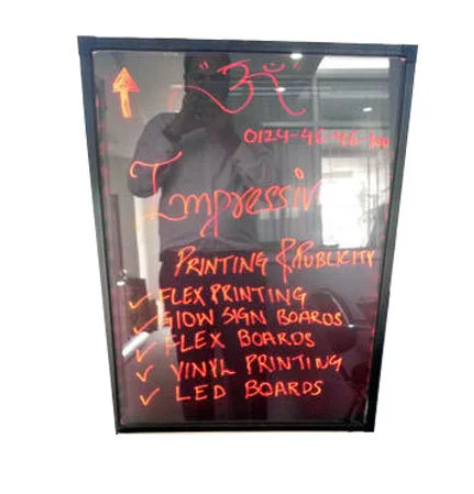 "ॐ"
0124-46-46-100
Impressive
PRINTING & PUBLICITY
✓ FLEX PRINTING
✓ GlOW SIGN BOARDS
✓ FLEX BOARDS
✓ VINYL PRINTING
✓ LED BOARDS